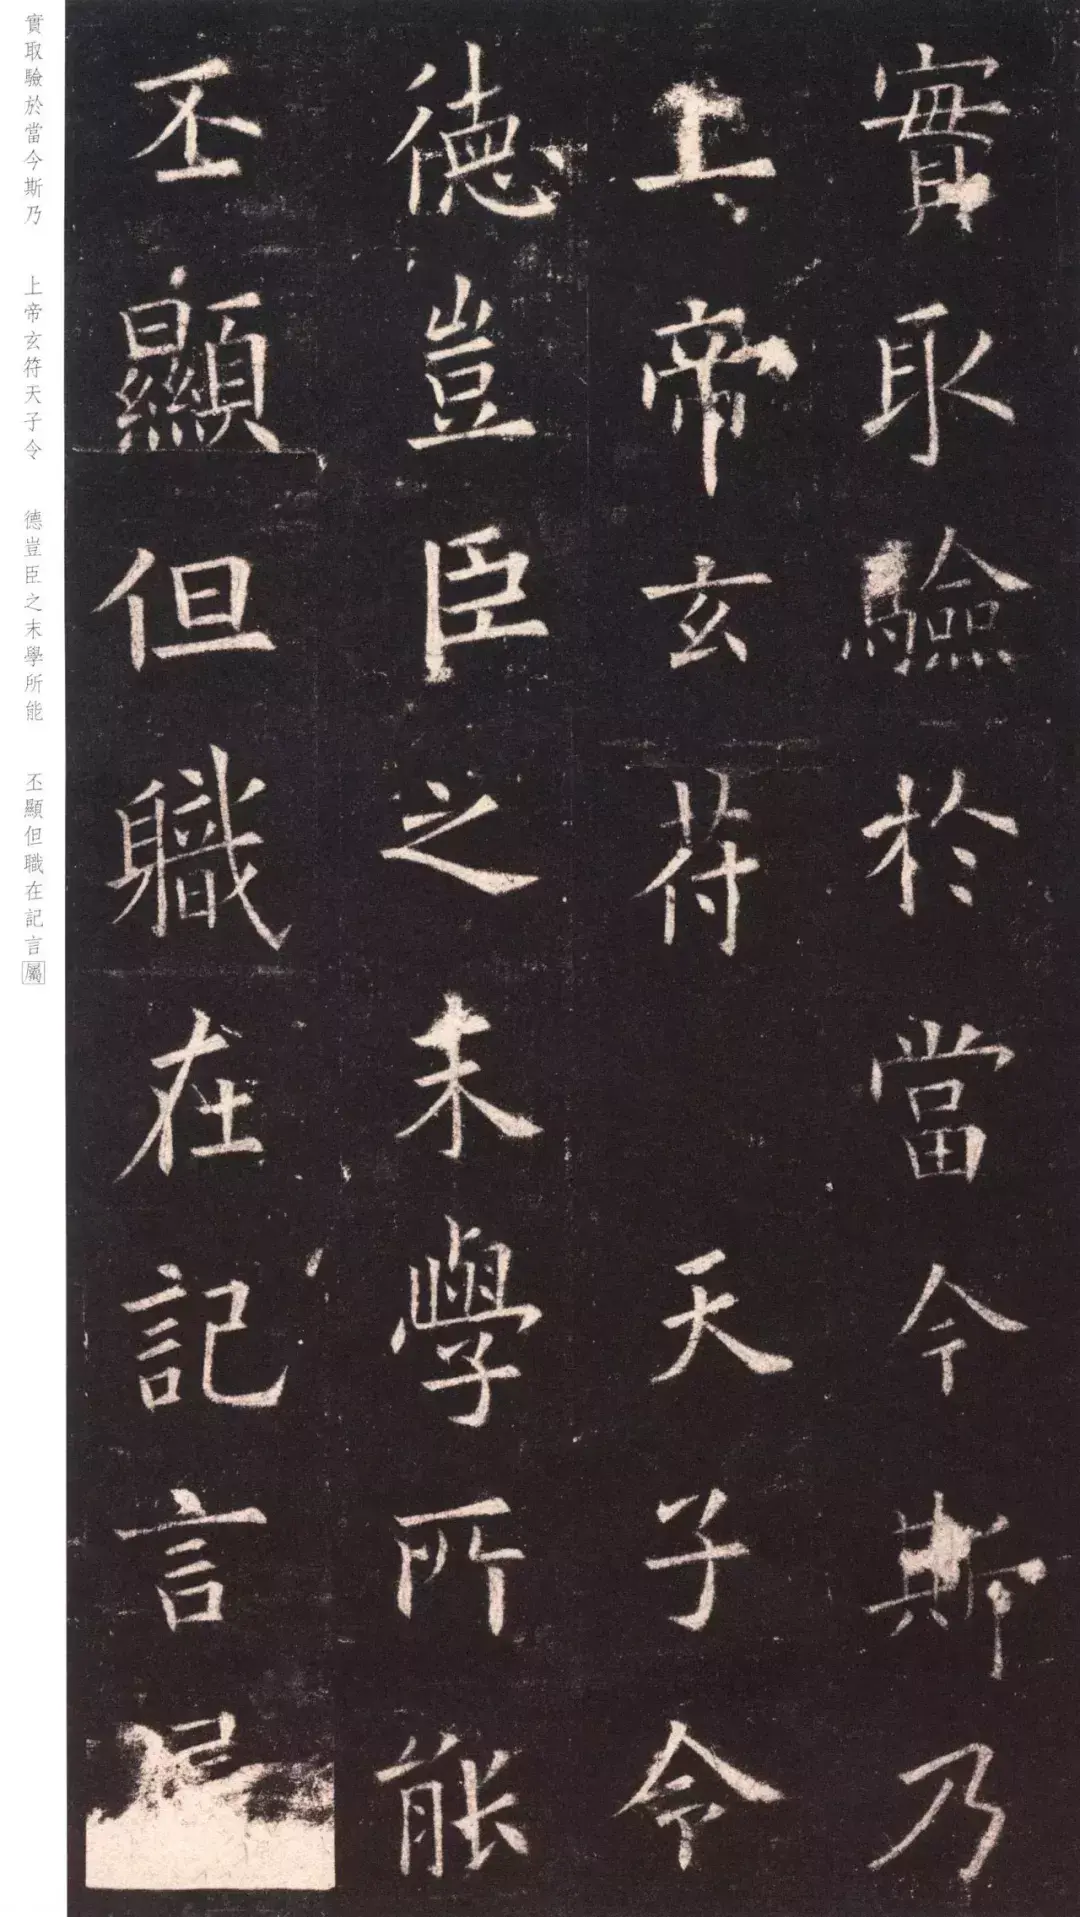 實取驗於當今斯乃
上帝玄符天子令
德豈臣之末學所能
丕顯但職在記言
實取驗於當今斯乃 上帝玄符天子令 德豈臣之末學所能 丕顯但職在記言屬